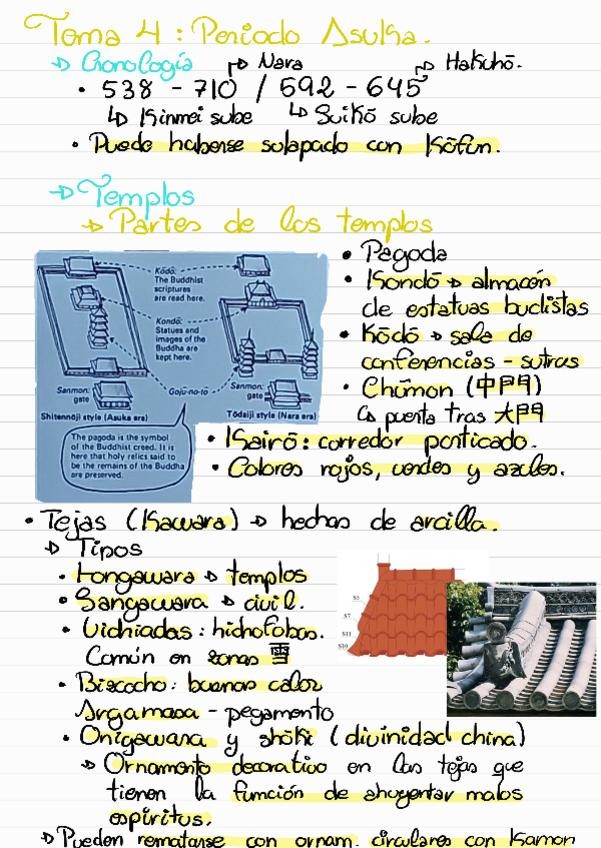 Tema 4: Periodo Asuka.
→ Cronología ↱ Nara ↱ Hakuhō.
• 538 - 710 / 592 - 645
↳ Kinmei sube ↳ Suikō sube
• Puede haberse solapado con Kōfun.
→ Templos
→ Partes de los templos
Kōdō:
The Buddhist
scriptures
are read here.
Kondō:
Statues and
images of the
Buddha are
kept here.
Sanmon:
gate
Gojū-no-tō
Sanmon:
gate
Shitennōji style (Asuka era)
Tōdaiji style (Nara era)
The pagoda is the symbol
of the Buddhist creed. It is
here that holy relics said to
be the remains of the Buddha
are preserved.
• Pagoda
• Kondō → almacén
de estatuas budistas
• Kōdō → sala de
conferencias - sutras
• Chūmon (中門)
↳ puerta tras 大門
• Kairō: corredor porticado.
• Colores rojos, verdes y azules.
• Tejas (Kawara) → hechas de arcilla.
→ Tipos
• Hongawara → templos
• Sangawara → civil.
• Vidriadas: hidrófobas.
Común en zonas 雪
• Bizcocho: buenas calor
Argamasa - pegamento
• Onigawara y shōki (divinidad china)
→ Ornamento decorativo en las tejas que
tienen la función de ahuyentar malos
espíritus.
→ Pueden rematarse con ornam. circulares con Kamon